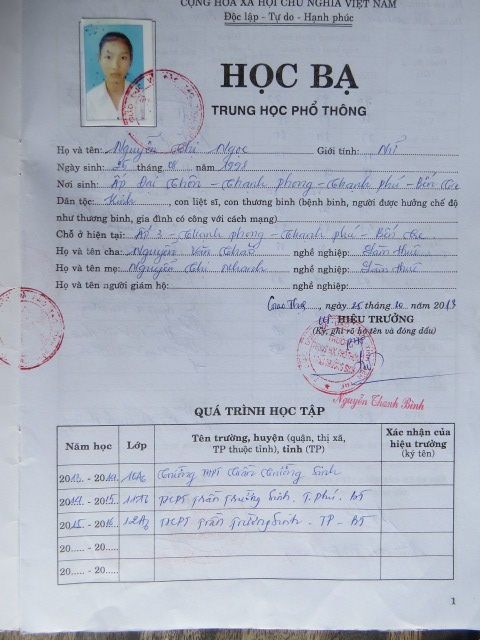 CỘNG HÒA XÃ HỘI CHỦ NGHĨA VIỆT NAM
Độc lập - Tự do - Hạnh phúc
HỌC BẠ
TRUNG HỌC PHỔ THÔNG
Họ và tên: Nguyễn Thị Ngọc Giới tính: Nữ
Ngày sinh: 25 tháng 08 năm 1998
Nơi sinh: Ấp Đại Thôn - Thanh phong - Thanh phú - Bến Tre
Dân tộc: Kinh, con liệt sĩ, con thương binh (bệnh binh, người được hưởng chế độ
như thương binh, gia đình có công với cách mạng)
Chỗ ở hiện tại: Ấp 3 - Thanh phong - Thanh phú - Bến Tre
Họ và tên cha: Nguyễn Văn nghề nghiệp: Làm thuê
Họ và tên mẹ: Nguyễn Thị Nhanh nghề nghiệp: Làm thuê
Họ và tên người giám hộ: nghề nghiệp:
Giao Thạnh, ngày 25 tháng 10 năm 2013
HIỆU TRƯỞNG
(Ký, ghi rõ họ tên và đóng dấu)
Nguyễn Thanh Bình
QUÁ TRÌNH HỌC TẬP
Năm học Lớp Tên trường, huyện (quận, thị xã, TP thuộc tỉnh), tỉnh (TP) Xác nhận của hiệu trưởng (ký tên)
2013 - 2014 10A6 Trường THPT Trần Trường Sinh
2014 - 2015 11A6 THPT Trần Trường Sinh - T. Phú - BT
2015 - 2016 12A6 THPT Trần Trường Sinh - TP - BT
20..... - 20.....
20..... - 20.....
1